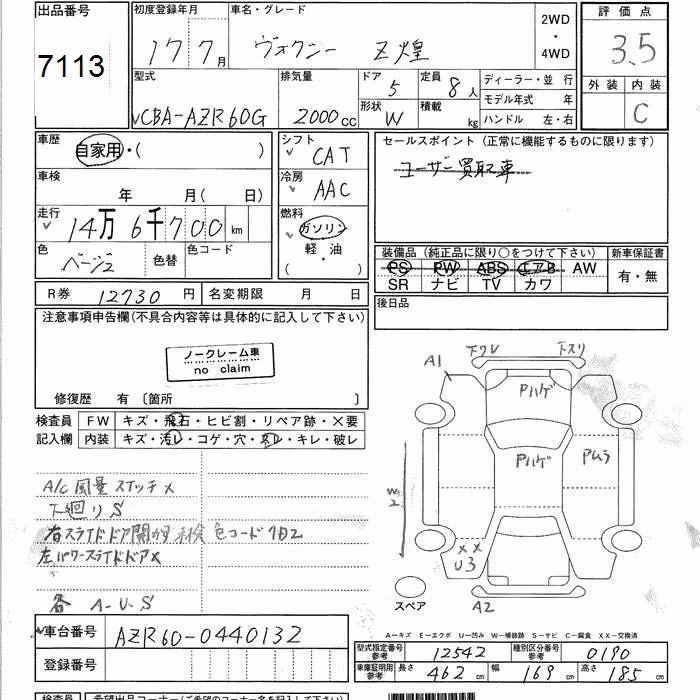 出品番号 初度登録年月 車名・グレード 2WD・4WD 評価点
7113 17 7月 ヴォクシー Z煌 3.5
型式 排気量 ドア 5 定員 8人 ディーラー・並 行 外装 内装
モデル年式 年
CBA-AZR60G 2000cc 形状 W 積載 kg ハンドル 左・右 C
車歴 自家用・( ) シフト CAT セールスポイント (正常に機能するものに限ります)
車検 年 月(日) 冷房 AAC ユーザー買取車
走行 14万6千700km 燃料 ガソリン
軽・油
( )
色 ベージュ 色替 色コード 装備品 (純正品に限り○をつけて下さい) 新車保証書
PS PW ABS エアB AW 有・無
SR ナビ TV カワ
R券 12730円 名変期限 月 日 後日品
注意事項申告欄(不具合内容等は具体的に記入して下さい)
ノークレーム車
no claim
修復歴 有 〔箇所 〕
検査員 FW キズ・飛石・ヒビ割・リペア跡・×要
記入欄 内装 キズ・汚レ・コゲ・穴・スレ・キレ・破レ
A/C 風量スイッチ×
下廻りS
右スライドドア開かず未検 色コード
左パワースライドドア×
各 A-U-S
A1 下ワレ 下スリ
Pハゲ
Pハゲ Pムラ
W2
××
U3
スペア A2
A―キズ E―エクボ U―凹み W―補修跡 S―サビ C―腐食 XX―交換済
車台番号 AZR60-0440132
登録番号
型式指定番号 参考 12542 種別区分番号 参考 0190
車庫証明用 参考 長さ 462cm 幅 169cm 高さ 185cm
検査員 希望出品コーナー(ご希望のコーナー名を記入下さい)